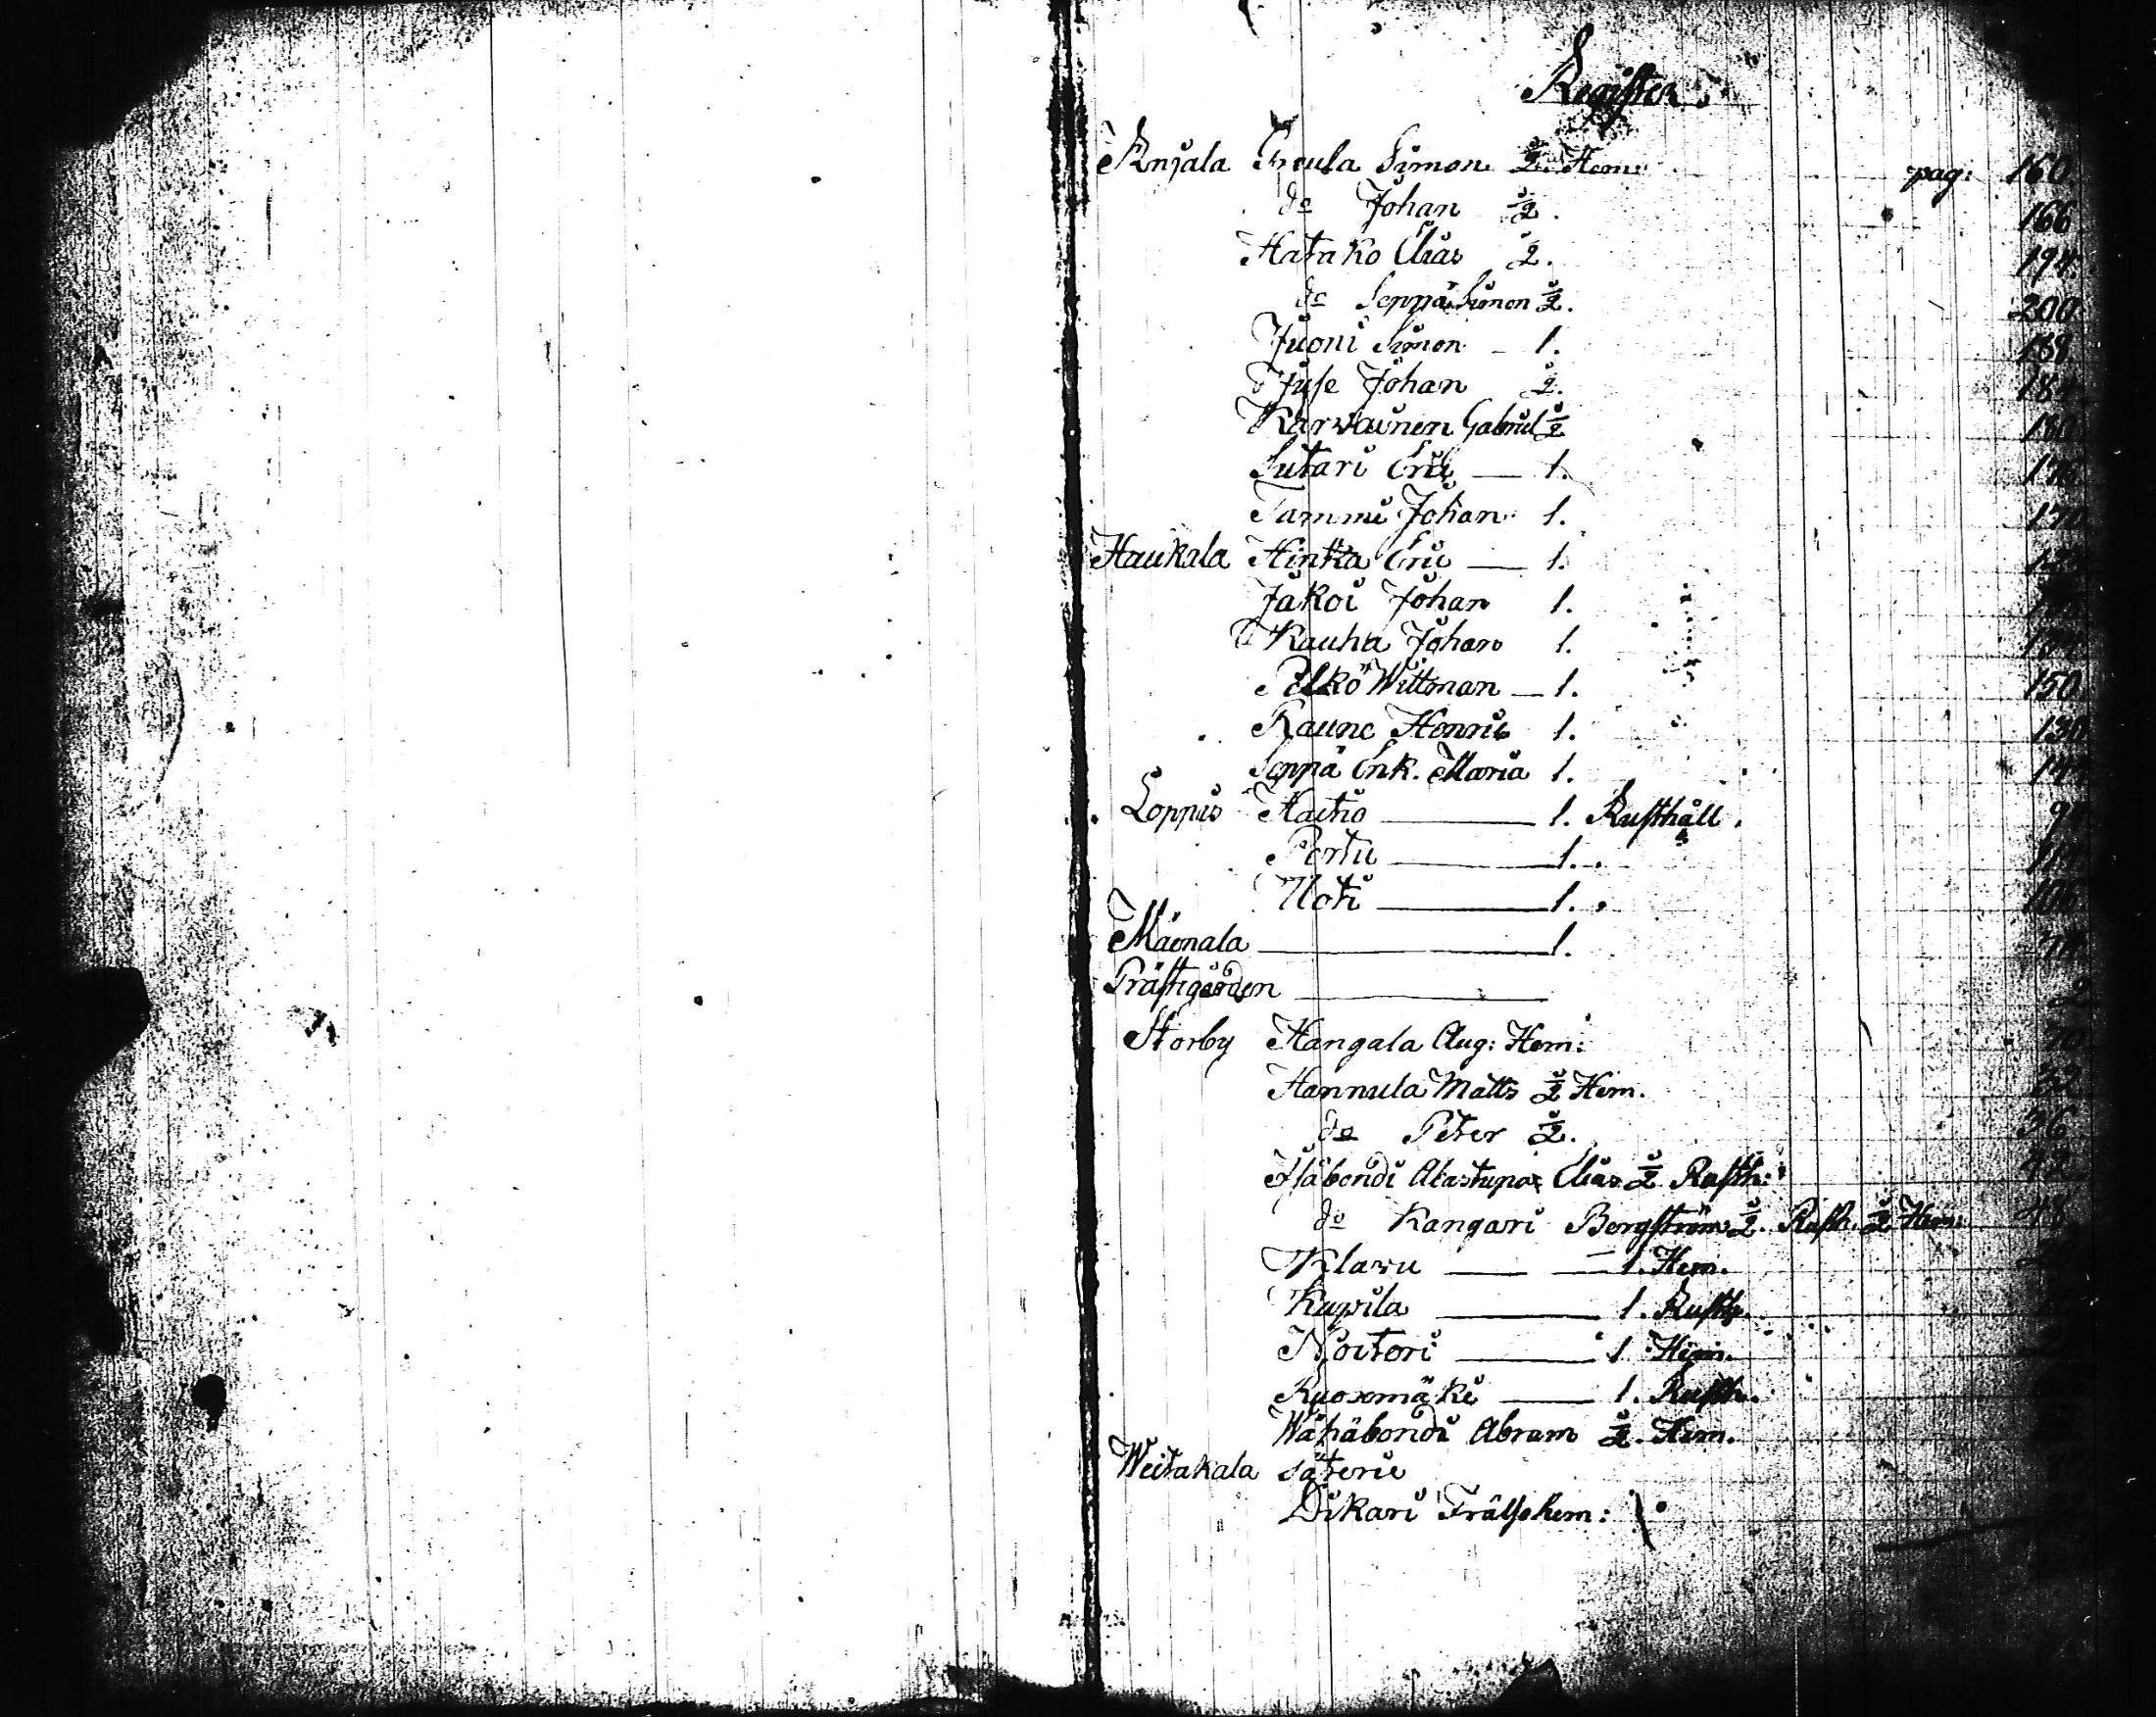 Register
Anjala Greula Simon ½ Hem: pag: 160.
do Johan ½. 166
Hatako Elias ½. 194.
do Seppä Simon ½. 200
Juoni Simon - 1. 188.
Juse Johan ½. 184
Karvainen Gabriel ½ 180
Sutari Eric — 1. 176
Tammi Johan 1. 170
Haukala Hintka Eric — 1.
Jakoi Johan 1.
Kauha Johan 1.
Pelkö Wittman — 1. 150
Raune Henric 1. 130
Seppä Enk. Maria 1.
Loppis Haitio — 1. Rusthåll.
Perttu — 1.
Uoti — 1. 106
Mäenala — 1. 74
Prästgården — 2
Storby Hangala Aug: Hem: 70
Hannula Matts ½ Hem. 32
do Peter ½. 36
Isäbondi Alastupa Elias ½ Rusth:
do Kangari Bergström ½. Rusth. ½ Hem: 48
Klavu — — 1. Hem.
Kupila — 1. Rusth.
Noitori — 1 Hem.
Ruosomäki — 1. Rusth.
Wähäbondi Abram ½. Hem.
Weitakala säterie
Dikari Frälsehem: